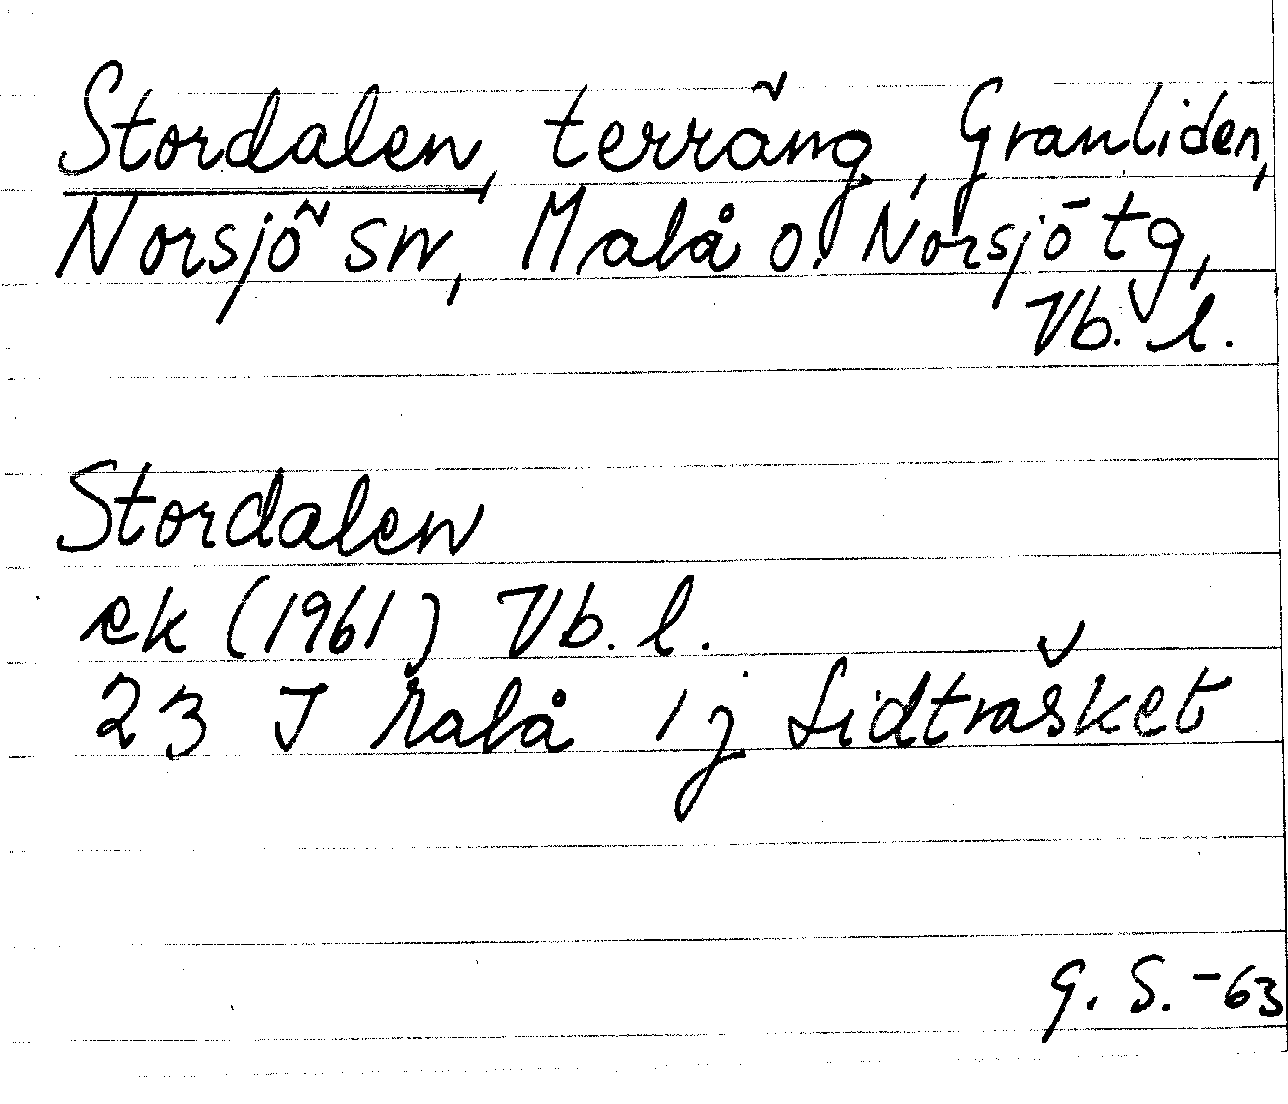 Stordalen, terräng, Granliden,
Norsjö sn, Malå o. Norsjö tg,
Vb. l.
Stordalen
ek (1961) Vb. l.
23 J Malå 1 j Lidträsket
G. S. -63